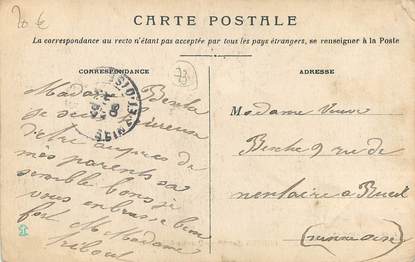 20 €
CARTE POSTALE
La correspondance au recto n'étant pas acceptée par tous les pays étrangers, se renseigner à la Poste
CORRESPONDANCE
73
ADRESSE
Madame Bertha
je suis heureuse
d'être auprès de
mes parents sa
semble bons je
vous embrasse bien
fort Me Madame
Madame Veuve
Berthe 9 rue de
a Rueil
SEINE-ET-OISE